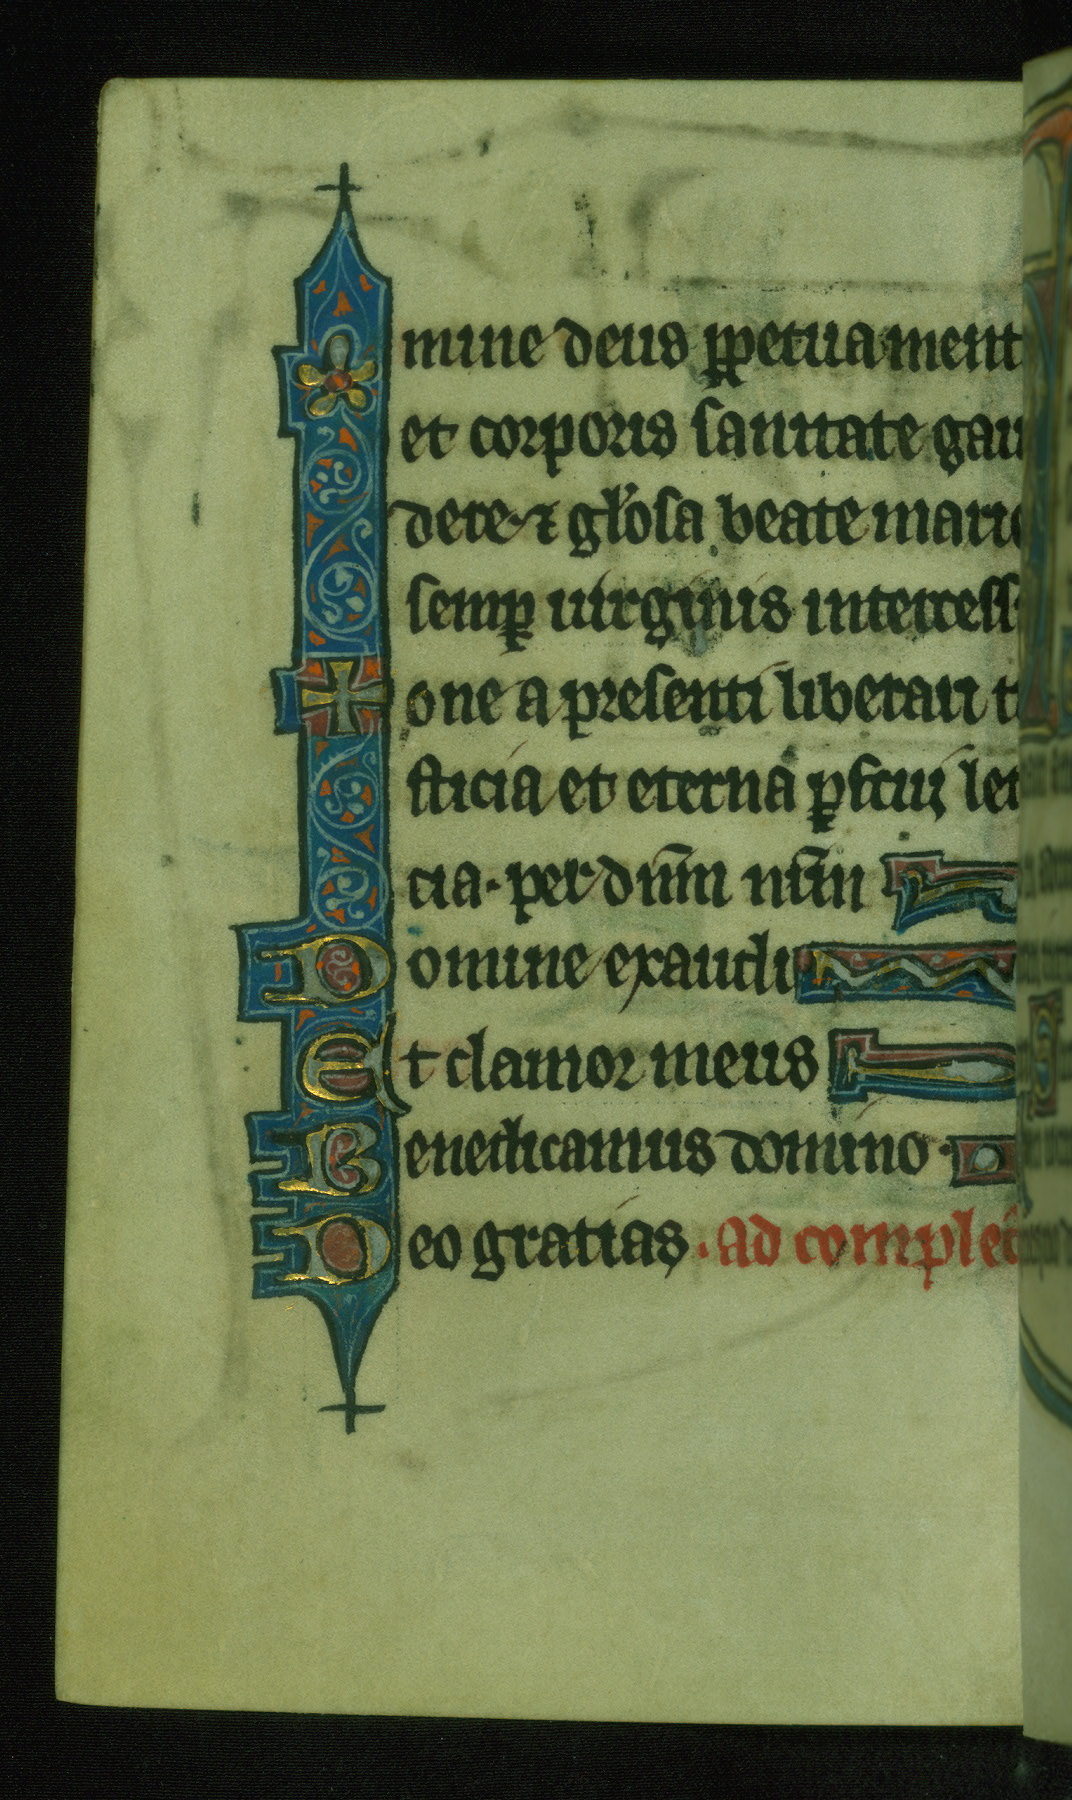 mine deus ꝑpetua ment
et corporis sanitate gau
dere ⁊ gl'osa beate marie
semꝑ uirginis intercess
one a presenti liberari t
sticia et eterna ꝑfrui let
cia. per dnm̄ nr̄m
Domine exaudi
Et clamor meus
Benedicamus domino.
Deo gratias. Ad complet